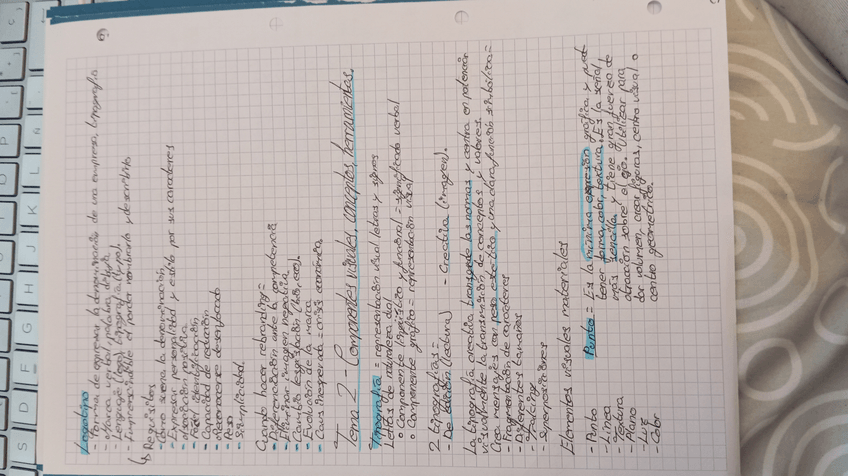 Logotipo
- Forma de expresar la denominación de una empresa, tipografía
- Marca verbal, palabra diseñ.
- Lenguaje (logo), tipografía (tipo),
- Imprescindible el poder nombrarlo y describirlo
↳ Requisitos
- Cómo suena la denominación
- Expresar personalidad y estilo por sus caracteres
- Asociación positiva
- Fácil identificación
- Capacidad de reducción
- Reconocerse desenfocado
- Peso
- Simplicidad.
Cuando hacer rebranding =
- Diferenciación ante la competencia
- Eliminar imagen negativa
- Cambio legislación
- Evolución de la marca
- Caus inesperada = crisis económica
Tema 2 - Componentes visuales, conceptos, herramientas.
Tipografía = representación visual letras y signos
Letras de naturaleza dual
o Componente lingüístico y funcional = significado verbal
o Componente gráfico = representación visual
2 tipografías =
- De edición (lectura) - Creativa (imagen).
La tipografía creativa transgrede las normas y centra en potenciar
visualmente la transmisión de conceptos y valores.
Crea mensajes con peso estético y una clara función simbólica =
- Fragmentación de caracteres
- Diferentes tamaños
- Tracking
- Superposiciones
Elementos visuales materiales
- Punto
- Línea
- Textura
- Plano
- Luz
- Color
Punto = Es la mínima expresión gráfica y puede
tener forma, color, textura. Es la señal
más sencilla y tiene gran fuerza de
atracción sobre el ojo. Utilizar para
dar volumen, crear figuras, centro visual o
centro geométrico.